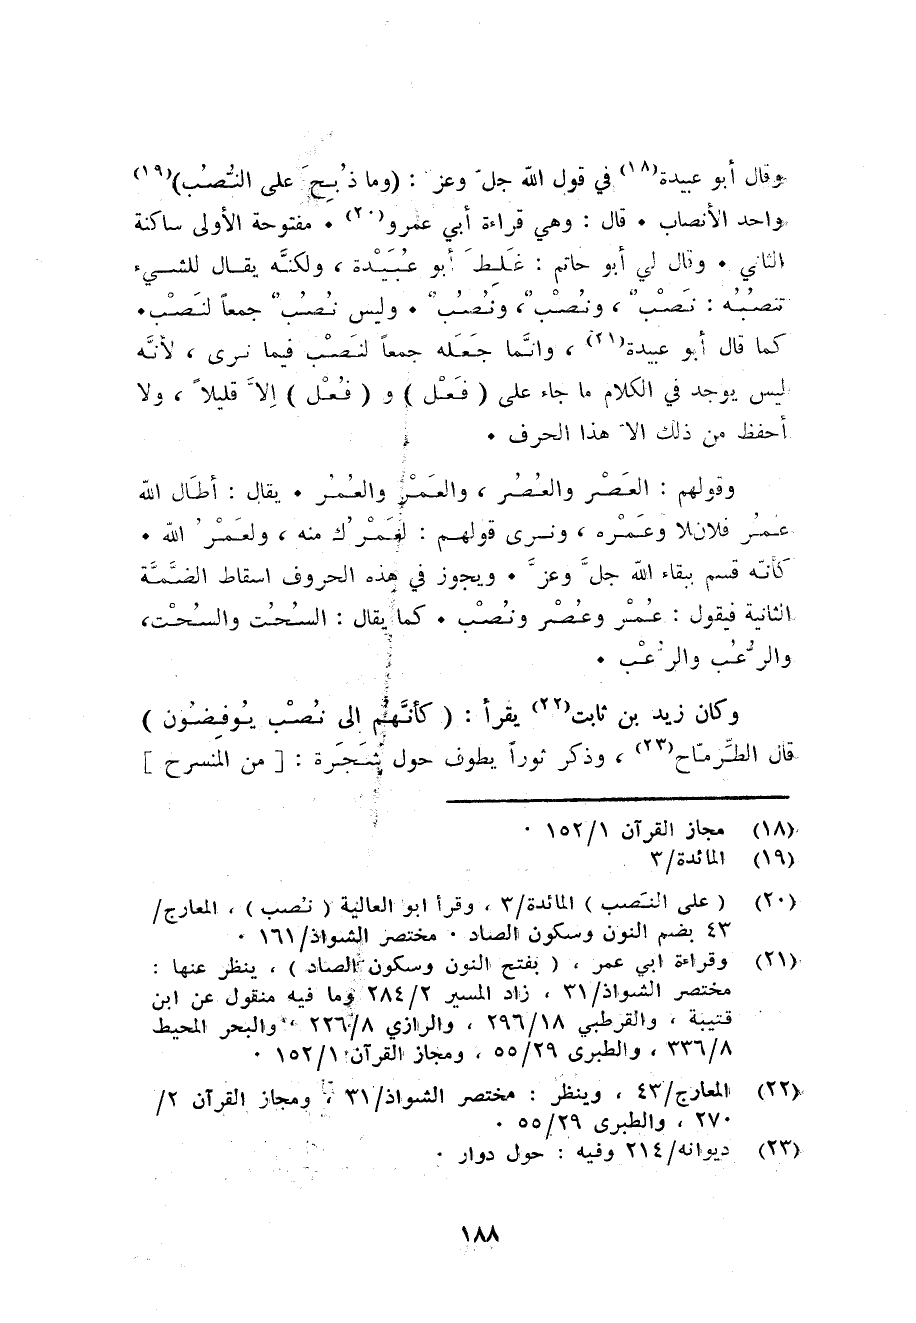 وقال أبو عبيدة(١٨) في قول الله جلّ وعزّ : (وما ذُبِحَ على النُّصُب)(١٩)
واحد الأنصاب ٠ قال : وهي قراءة أبي عمرو(٢٠) ٠ مفتوحة الأولى ساكنة
الثاني ٠ وقال لي أبو حاتم : غَلِطَ أبو عُبَيْدة ، ولكنَّه يقال للشيء
تنصُبُه : نَصْبٌ ، ونُصْبٌ ، ونُصُبٌ ٠ وليس نُصُبٌ جمعاً لنَصْب ٠
كما قال أبو عبيدة(٢١) ، وانَّما جَعَله جمعاً لنَصْب فيما نرى ، لأنَّه
ليس يوجد في الكلام ما جاء على ( فَعْل ) و ( فُعْل ) إلاَّ قليلاً ، ولا
أحفظ من ذلك الاّ هذا الحرف ٠
وقولهم : العَصْر والعُصُر ، والعَمْر والعُمُر ٠ يقال : أطَال الله
عمُر فلان وعَمْره ، ونرى قولهم : لَعَمْرُك منه ، ولَعَمْرُ الله ٠
كأنّه قسم ببقاء الله جلَّ وعزَّ ٠ ويجوز في هذه الحروف اسقاط الضَّمَّة
الثانية فيقول : عُمْر وعُصْر ونُصْب ٠ كما يقال : السُحُت والسُحْت،
والرُّعُب والرُّعْب ٠
وكان زيد بن ثابت(٢٢) يقرأ : ( كأنَّهُم الى نُصْب يُوفِضُون )
قال الطِّرمّاح(٢٣) ، وذكر ثوراً يطوف حول شَجَرة : [ من المنسرح ]
(١٨) مجاز القرآن ١/١٥٢ ٠
(١٩) المائدة/٣
(٢٠) ( على النَصب ) المائدة/٣ ، وقرأ ابو العالية ( نُصب ) ، المعارج/
٤٣ بضم النون وسكون الصاد ٠ مختصر الشواذ/١٦١ ٠
(٢١) وقراءة ابي عمر ، ( بفتح النون وسكون الصاد ) ، ينظر عنها :
مختصر الشواذ/٣١ ، زاد المسير ٢/٢٨٤ وما فيه منقول عن ابن
قتيبة ، والقرطبي ١٨/٢٩٦ ، والرازي ٨/٢٢٦ ، والبحر المحيط
٨/٣٣٦ ، والطبرى ٢٩/٥٥ ، ومجاز القرآن ١/١٥٢ ٠
(٢٢) المعارج/٤٣ ، وينظر : مختصر الشواذ/٣١ ، ومجاز القرآن ٢/
٢٧٠ ، والطبرى ٢٩/٥٥ ٠
(٢٣) ديوانه/٢١٤ وفيه : حول دوار ٠
١٨٨